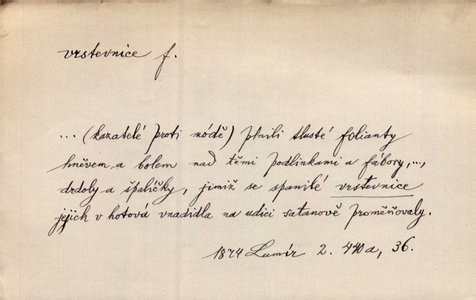 vrstevnice f.
... (kazatelé proti módě) plnili tlusté folianty
hněvem a bolem nad těmi podlinkami a fábory, ...,
drdoly a špalíčky, jimiž se spanilé vrstevnice
jejich v hotová vnadidla na udici satanově proměňovaly.
1874 Lumír 2. 440a, 36.